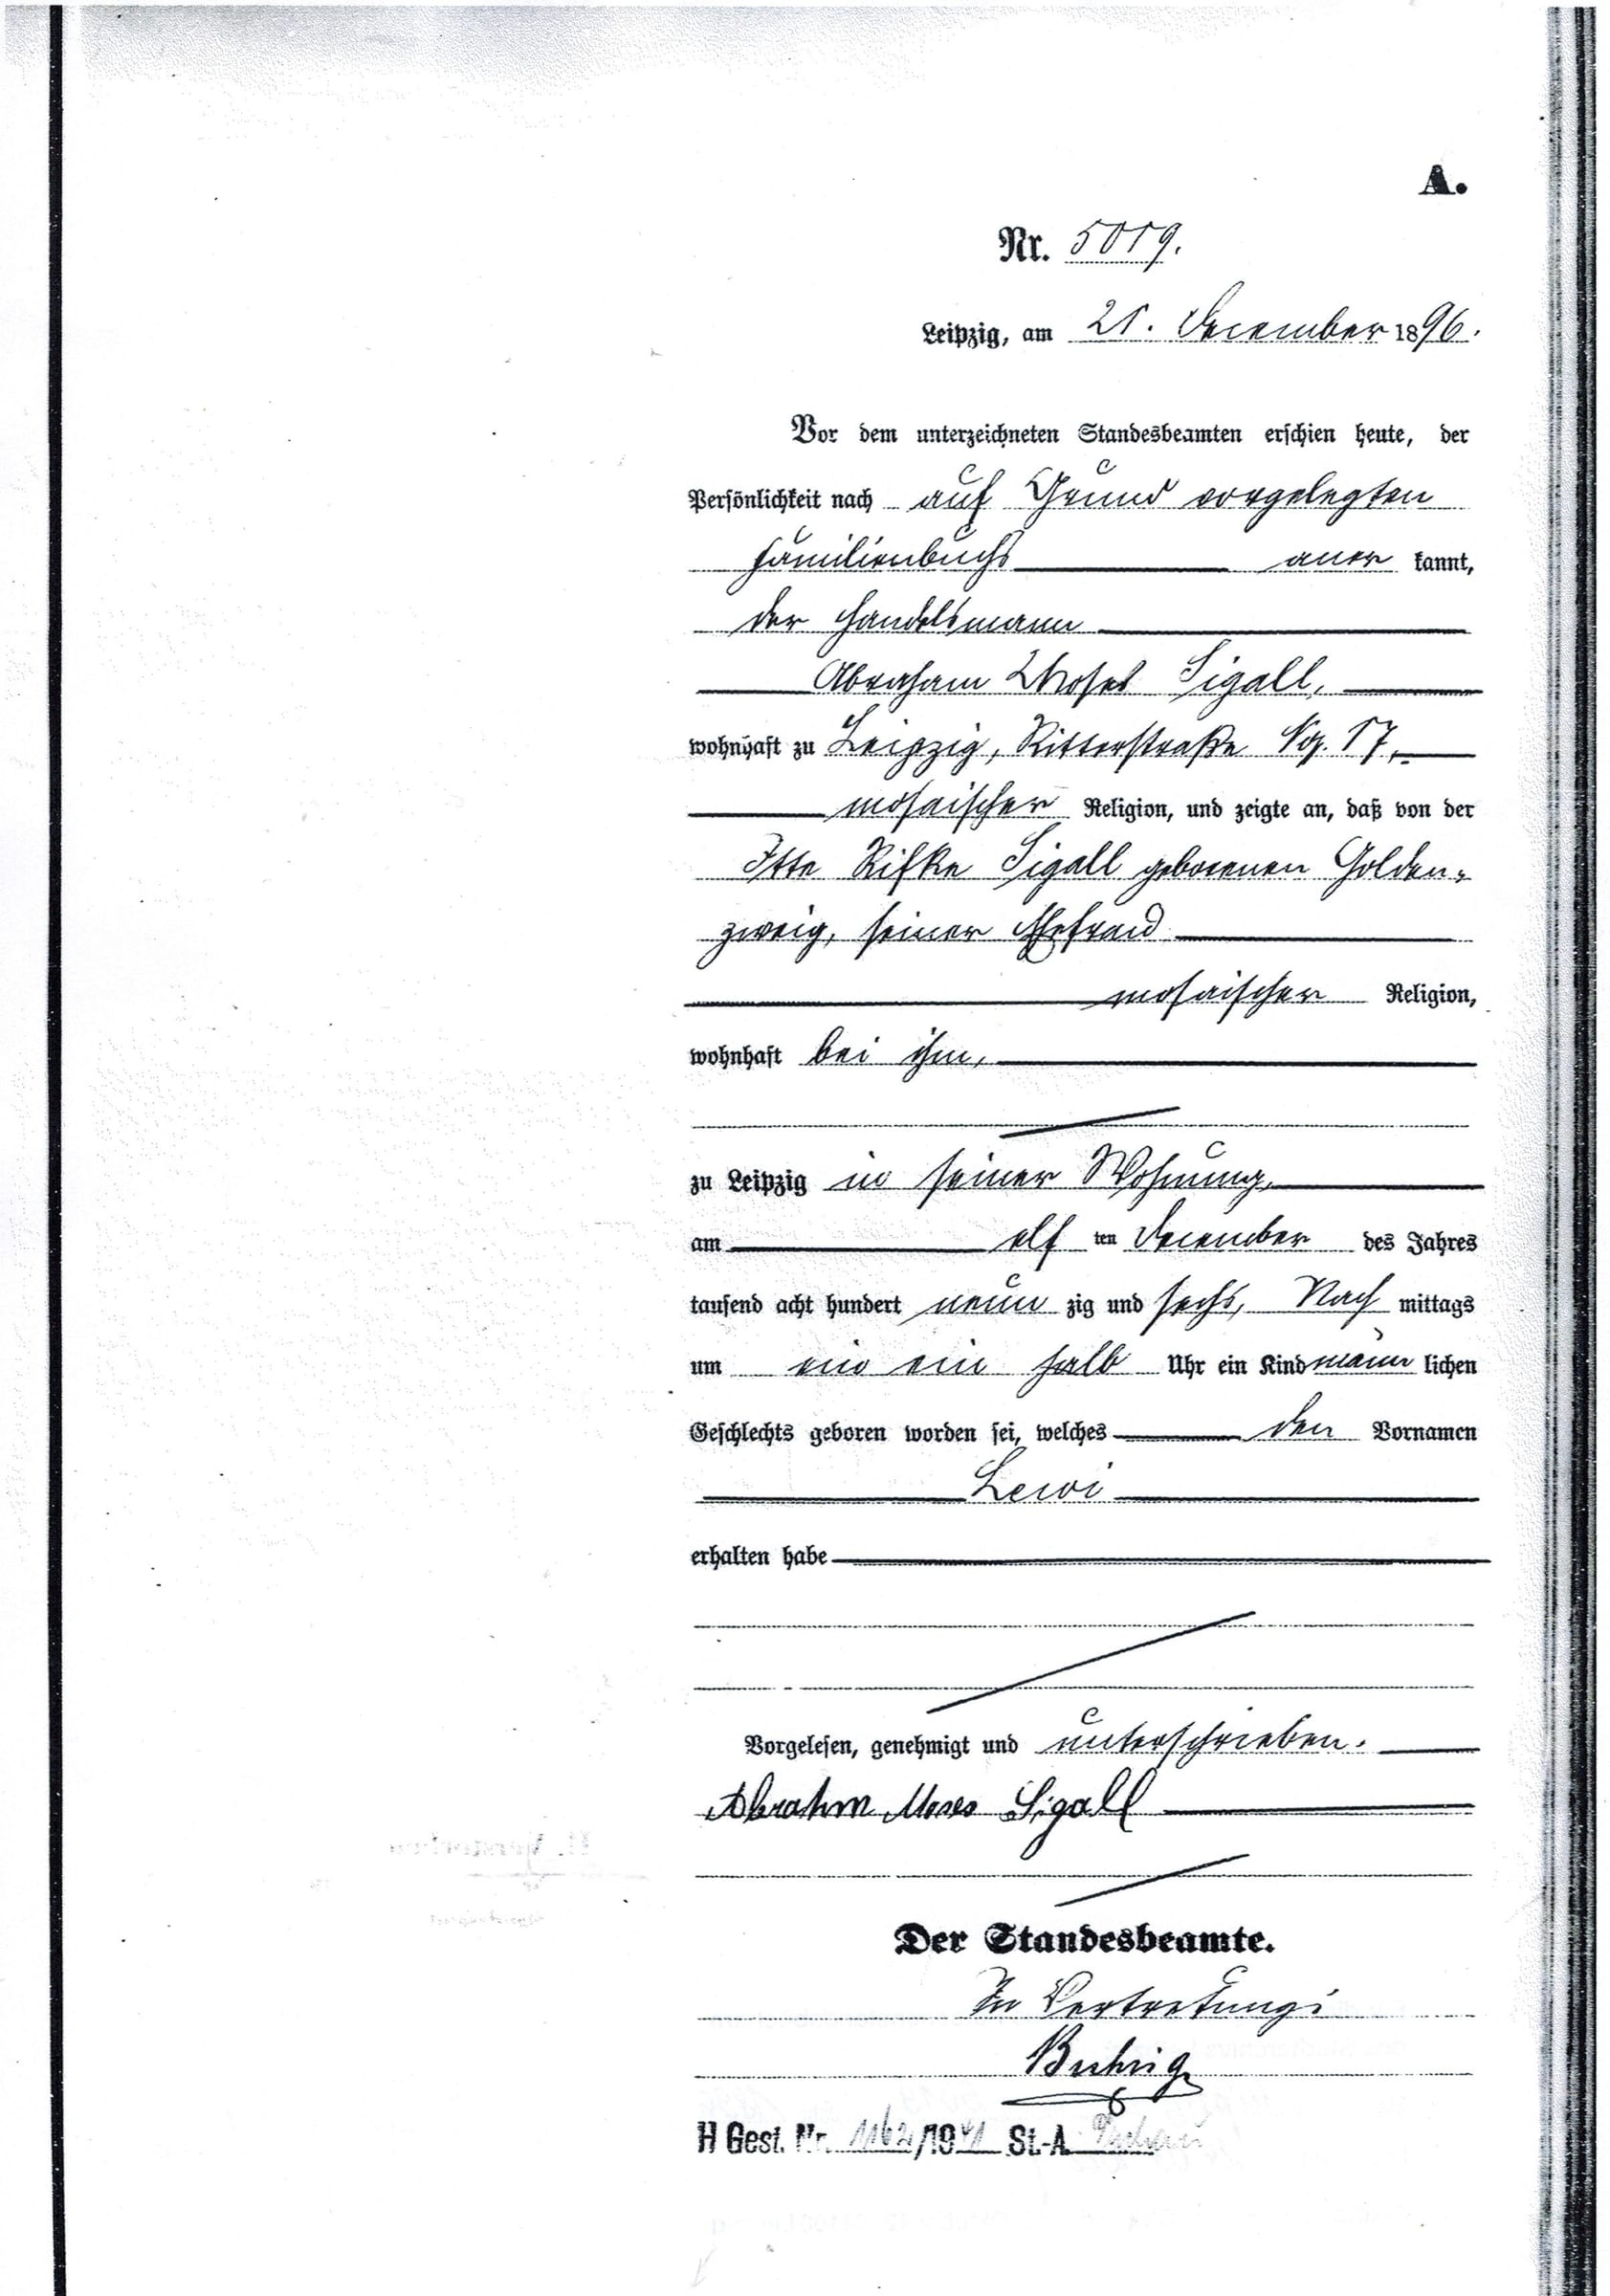 A.
Nr. 5019.
Leipzig, am 21. December 1896.
Vor dem unterzeichneten Standesbeamten erschien heute, der
Persönlichkeit nach auf Grund vorgelegten
Familienbuchs anerkannt,
der Handelsmann
Abraham Moses Sigall,
wohnhaft zu Leipzig, Ritterstraße No. 17,
mosaischer Religion, und zeigte an, daß von der
Itte Rifke Sigall geborenen Golden-
zweig, seiner Ehefrau
mosaischer Religion,
wohnhaft bei ihm,
zu Leipzig in seiner Wohnung,
am elften December des Jahres
tausend acht hundert neunzig und sechs, Nachmittags
um ein ein halb Uhr ein Kind männlichen
Geschlechts geboren worden sei, welches den Vornamen
Lewi
erhalten habe
Vorgelesen, genehmigt und unterschrieben.
Abrahm Moses Sigall
Der Standesbeamte.
In Vertretung:
Buhrig
H Gest. Nr. 1162/1941 St.-A. Dachau